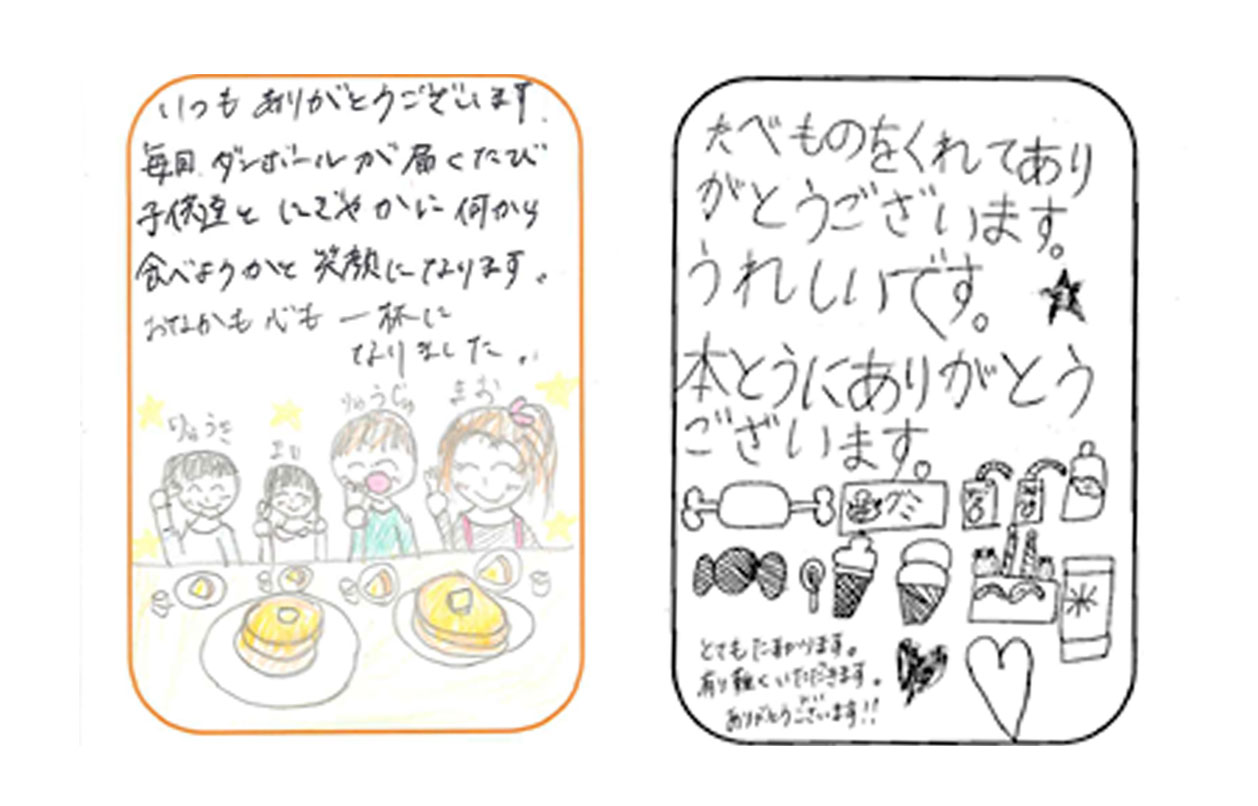 いつも ありがとうございます.
毎回 ダンボールが届くたび
子供達と にぎやかに 何から
食べようかと 笑顔になります。
おなかも 心も 一杯に
なりました。
りゅうじゅ
まお
りゅうき
まい
たべものをくれてあり
がとうございます。
うれしいです。
本とうにありがとう
ございます。
グミ
とてもたすかります。
有り難くいただきます。
ありがとうございます!!